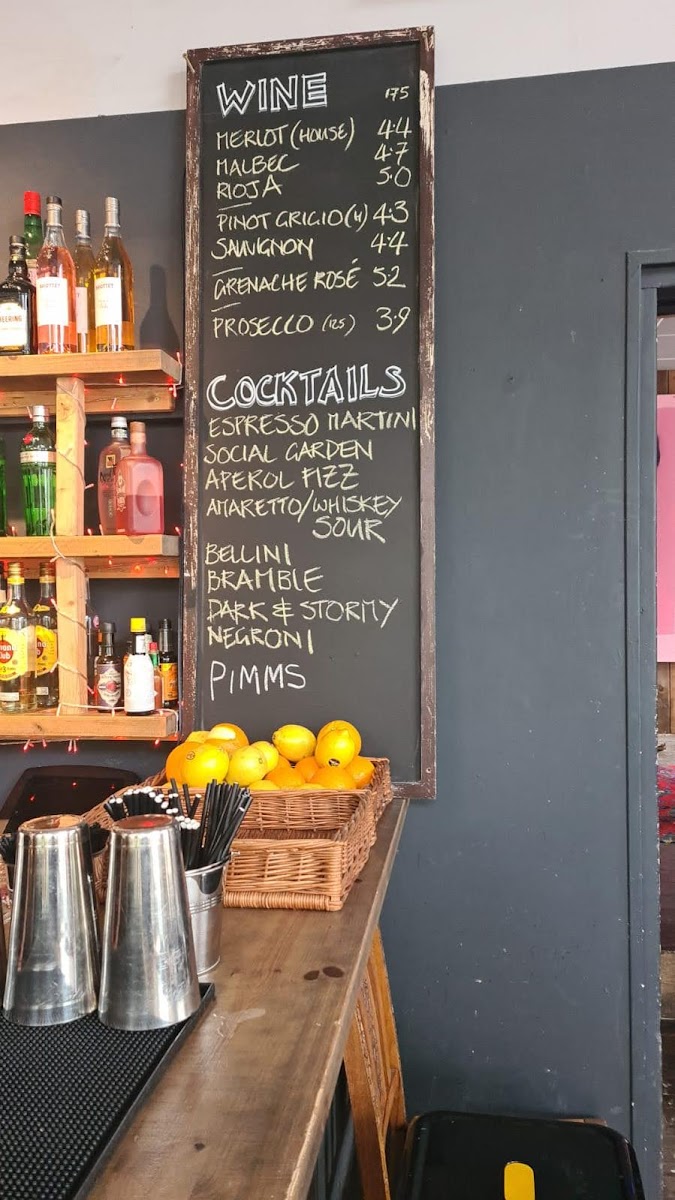 WINE 175
MERLOT (HOUSE) 4.4
MALBEC 4.7
RIOJA 5.0
PINOT GRIGIO (H) 4.3
SAUVIGNON 4.4
GRENACHE ROSÉ 5.2
PROSECCO (125) 3.9
COCKTAILS
ESPRESSO MARTINI
SOCIAL GARDEN
APEROL FIZZ
AMARETTO/WHISKEY
SOUR
BELLINI
BRAMBLE
DARK & STORMY
NEGRONI
PIMMS